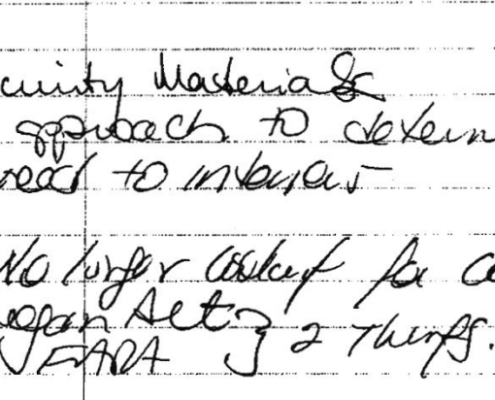 curity Materials
approach to determ
need to interview
No longer looking for a
Logan Act } 2 things.
FARA